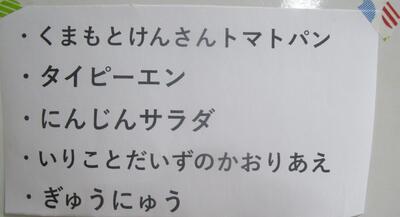 ・くまもとけんさんトマトパン
・タイピーエン
・にんじんサラダ
・いりことだいずのかおりあえ
・ぎゅうにゅう